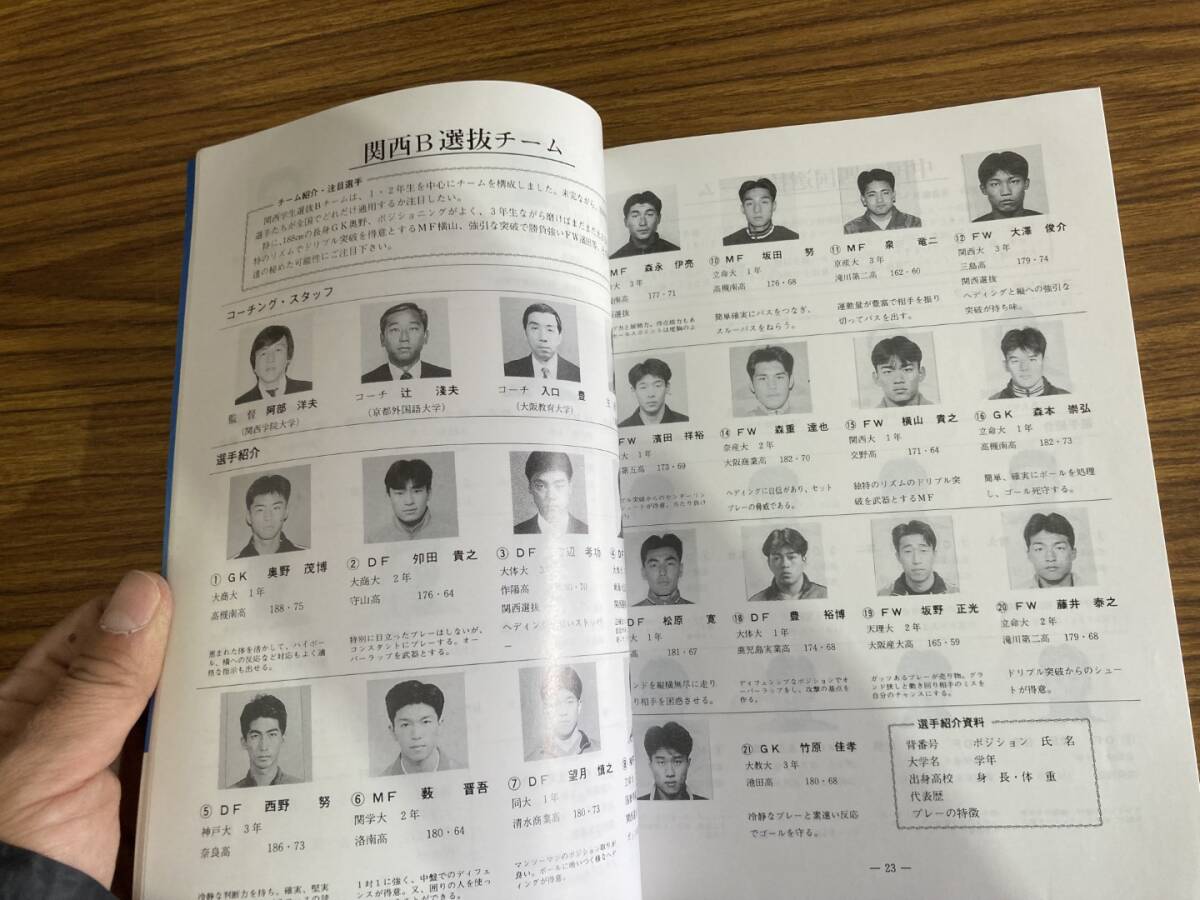 関西B選抜チーム
チーム紹介・注目選手
関西学生選抜Bチームは、1・2年生を中心にチームを構成しました。未完ながら、
選手たちが全国でどれだけ通用するか注目したい。
特に、188cmの長身GK奥野、ポジショニングがよく、3年生ながら磨けばまだまだ
特のリズムでドリブル突破を得意とするMF横山、強引な突破で勝負強いFW濱田等、
達の秘めた可能性にご注目下さい。
コーチング・スタッフ
監督 阿部 洋夫
(関西学院大学)
コーチ 辻 淺夫
(京都外国語大学)
コーチ 入口 豊
(大阪教育大学)
選手紹介
① GK 奥野 茂博
大商大 1年
高槻南高 188・75
恵まれた体を活かして、ハイボー
ル、横への反応など対応もよく適
格な指示も出せる。
② DF 卯田 貴之
大商大 2年
守山高 176・64
特別に目立ったプレーはしないが、
コンスタントにプレーする。オー
バーラップを武器とする。
③ DF 辺 考功
大体大 3
作陽高 ・70
関西選抜
ヘディング
⑤ DF 西野 努
神戸大 3年
奈良高 186・73
冷静な判断力を持ち、確実、堅実
⑥ MF 薮 晋吾
関学大 2年
洛南高 180・64
1対1に強く、中盤でのディフェ
ンスが得意。又、囲りの人を使っ
ことができる。
⑦ DF 望月 慎之
同大 1年
清水商業高 180・73
マンツーマンのポジション取りが
良い。ボールに喰いつく様なヘデ
ィングが得意。
MF 森永 伊亮
大 3年
南高 177・71
選抜
⑩ MF 坂田 努
立命大 1年
高槻南高 176・68
簡単確実にパスをつなぎ、
スルーパスをねらう。
⑪ MF 泉 竜二
京産大 3年
滝川第二高 162・60
運動量が豊富で相手を振り
切ってパスを出す。
⑫ FW 大澤 俊介
関西大 3年
三島高 179・74
関西選抜
ヘディングと縦への強引な
突破が持ち味。
FW 濱田 祥裕
大 1年
第五高 173・69
ブル突破からのセンターリン
シュートが得意。当たり負け
⑭ FW 森重 達也
奈産大 2年
大阪商業高 182・70
ヘディングに自信があり、セット
プレーの脅威である。
⑮ FW 横山 貴之
関西大 1年
交野高 171・64
独特のリズムのドリブル突
破を武器とするMF
⑯ GK 森本 崇弘
立命大 1年
高槻南高 182・73
簡単、確実にボールを処理
し、ゴール死守する。
DF 松原 寛
大 1年
高 181・67
ンドを縦横無尽に走り
り相手を困惑させる。
⑱ DF 豊 裕博
大体大 1年
鹿児島実業高 174・68
ディフェンシブなポジションでオ
ーバーラップをし、攻撃の基点を
作る。
⑲ FW 坂野 正光
天理大 2年
大阪産大高 165・59
ガッツあるプレーが売り物。グラ
ンド狭しと動き回り相手のミスを
自分のチャンスにする。
⑳ FW 藤井 泰之
立命大 2年
滝川第二高 179・68
ドリブル突破からのシュー
トが得意。
㉑ GK 竹原 佳孝
大教大 3年
池田高 180・68
冷静なプレーと素速い反応
でゴールを守る。
選手紹介資料
背番号 ポジション 氏名
大学名 学年
出身高校 身長・体重
代表歴
プレーの特徴
— 23 —